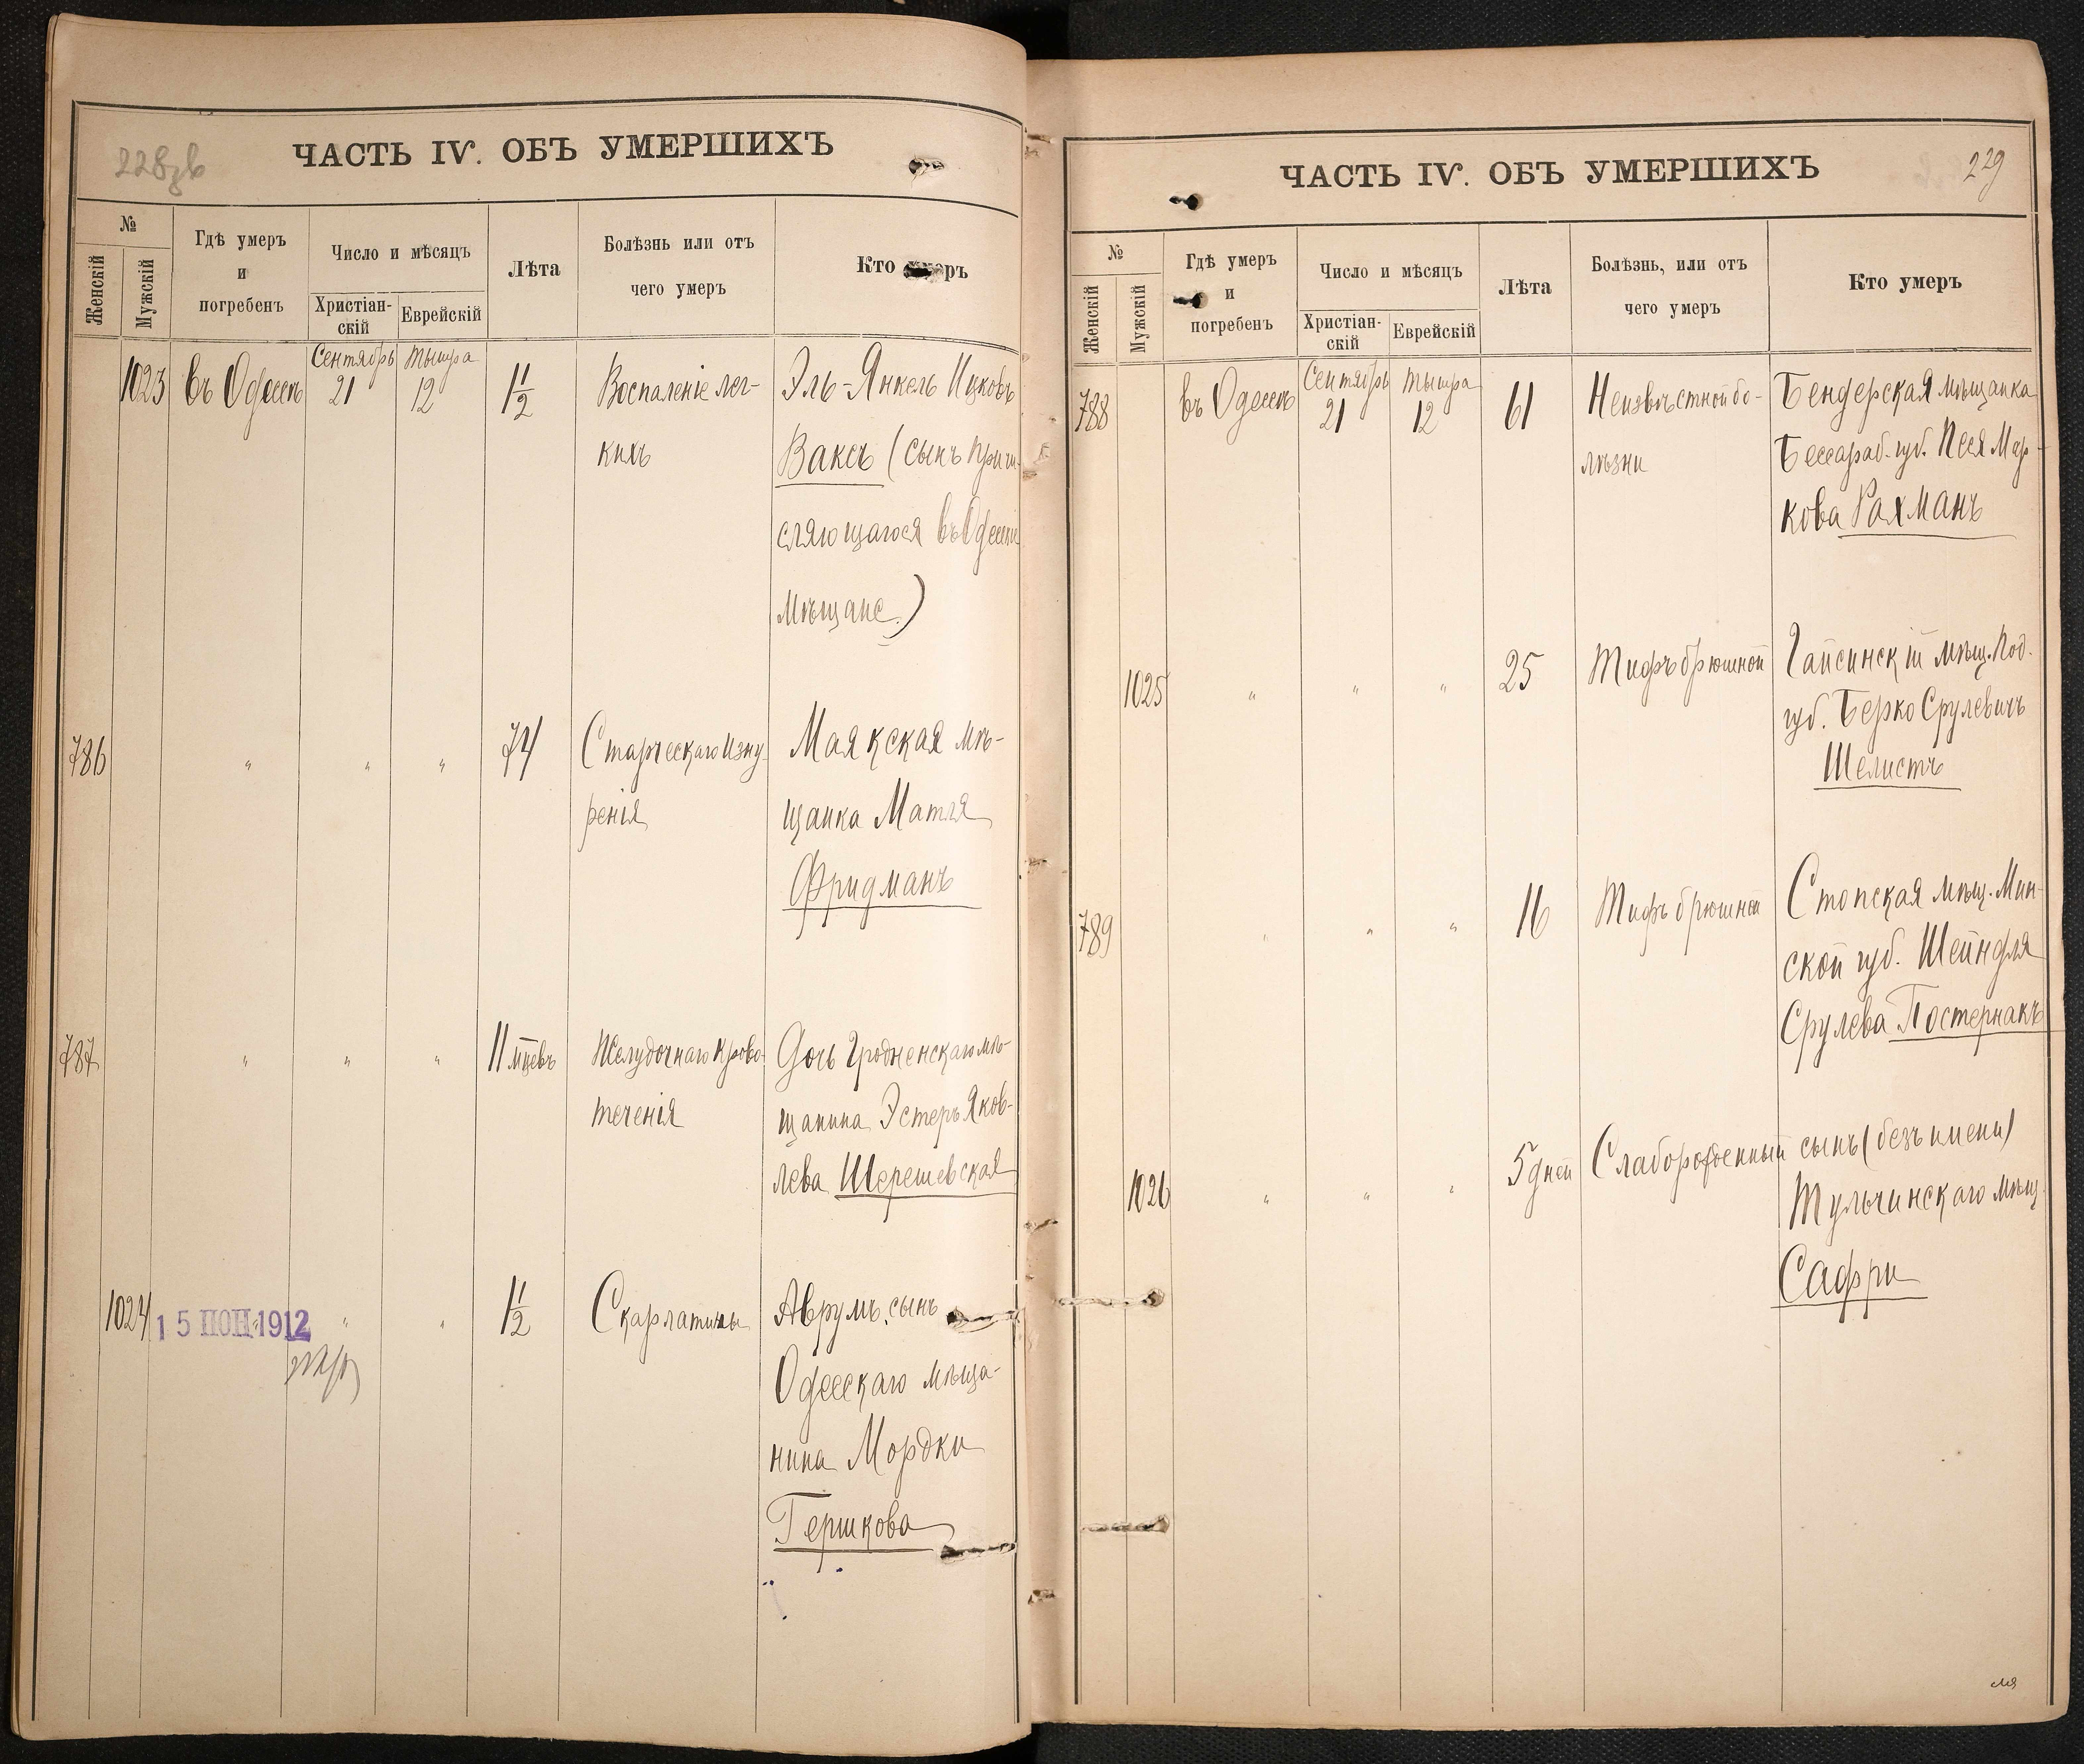 228зв
ЧАСТЬ IV. ОБЪ УМЕРШИХЪ
№
Женскій
Мужскій
Гдѣ умеръ
и
погребенъ
Число и мѣсяцъ
Христіан-
скій
Еврейскій
Лѣта
Болѣзнь или отъ
чего умеръ
Кто умеръ
1023
въ Одессѣ
Сентябрь
21
Тышра
12
1 1/2
Воспаленіе лег-
кихъ
Эль-Янкель Ицковъ
Ваксъ (сынъ причи-
сляющагося въ Одесскіе
мѣщане.)
786
"
"
"
74
Старческаго изну-
ренія
Маякская мѣ-
щанка Матля
Фридманъ
787
"
"
"
11 мцевъ
Желудочнаго крово-
теченія
Дочь Гродненскаго мѣ-
щанина Эстеръ Яков-
лева Шерешевская
1024
15 ІЮН 1912
"
"
"
1 1/2
Скарлатины
Аврумъ, сынъ
Одесскаго мѣща-
нина Мордки
Гершкова
ЧАСТЬ IV. ОБЪ УМЕРШИХЪ
229
№
Женскій
Мужскій
Гдѣ умеръ
и
погребенъ
Число и мѣсяцъ
Христіан-
скій
Еврейскій
Лѣта
Болѣзнь, или отъ
чего умеръ
Кто умеръ
788
въ Одессѣ
Сентябрь
21
Тышра
12
61
Неизвѣстной бо-
лѣзни
Бендерская мѣщанка
Бессараб. губ. Песя Мар-
кова Рахманъ
1025
"
"
"
25
Тифъ брюшной
Гайсинскій мѣщ. Под.
губ. Берко Срулевичъ
Шелистъ
789
"
"
"
16
Тифъ брюшной
Столская мѣщ. Мин-
ской губ. Шейндля
Срулева Постернакъ
1026
"
"
"
5 дней
Слаборожденный
сынъ (безъ имени)
Тульчинскаго мѣщ.
Сафри